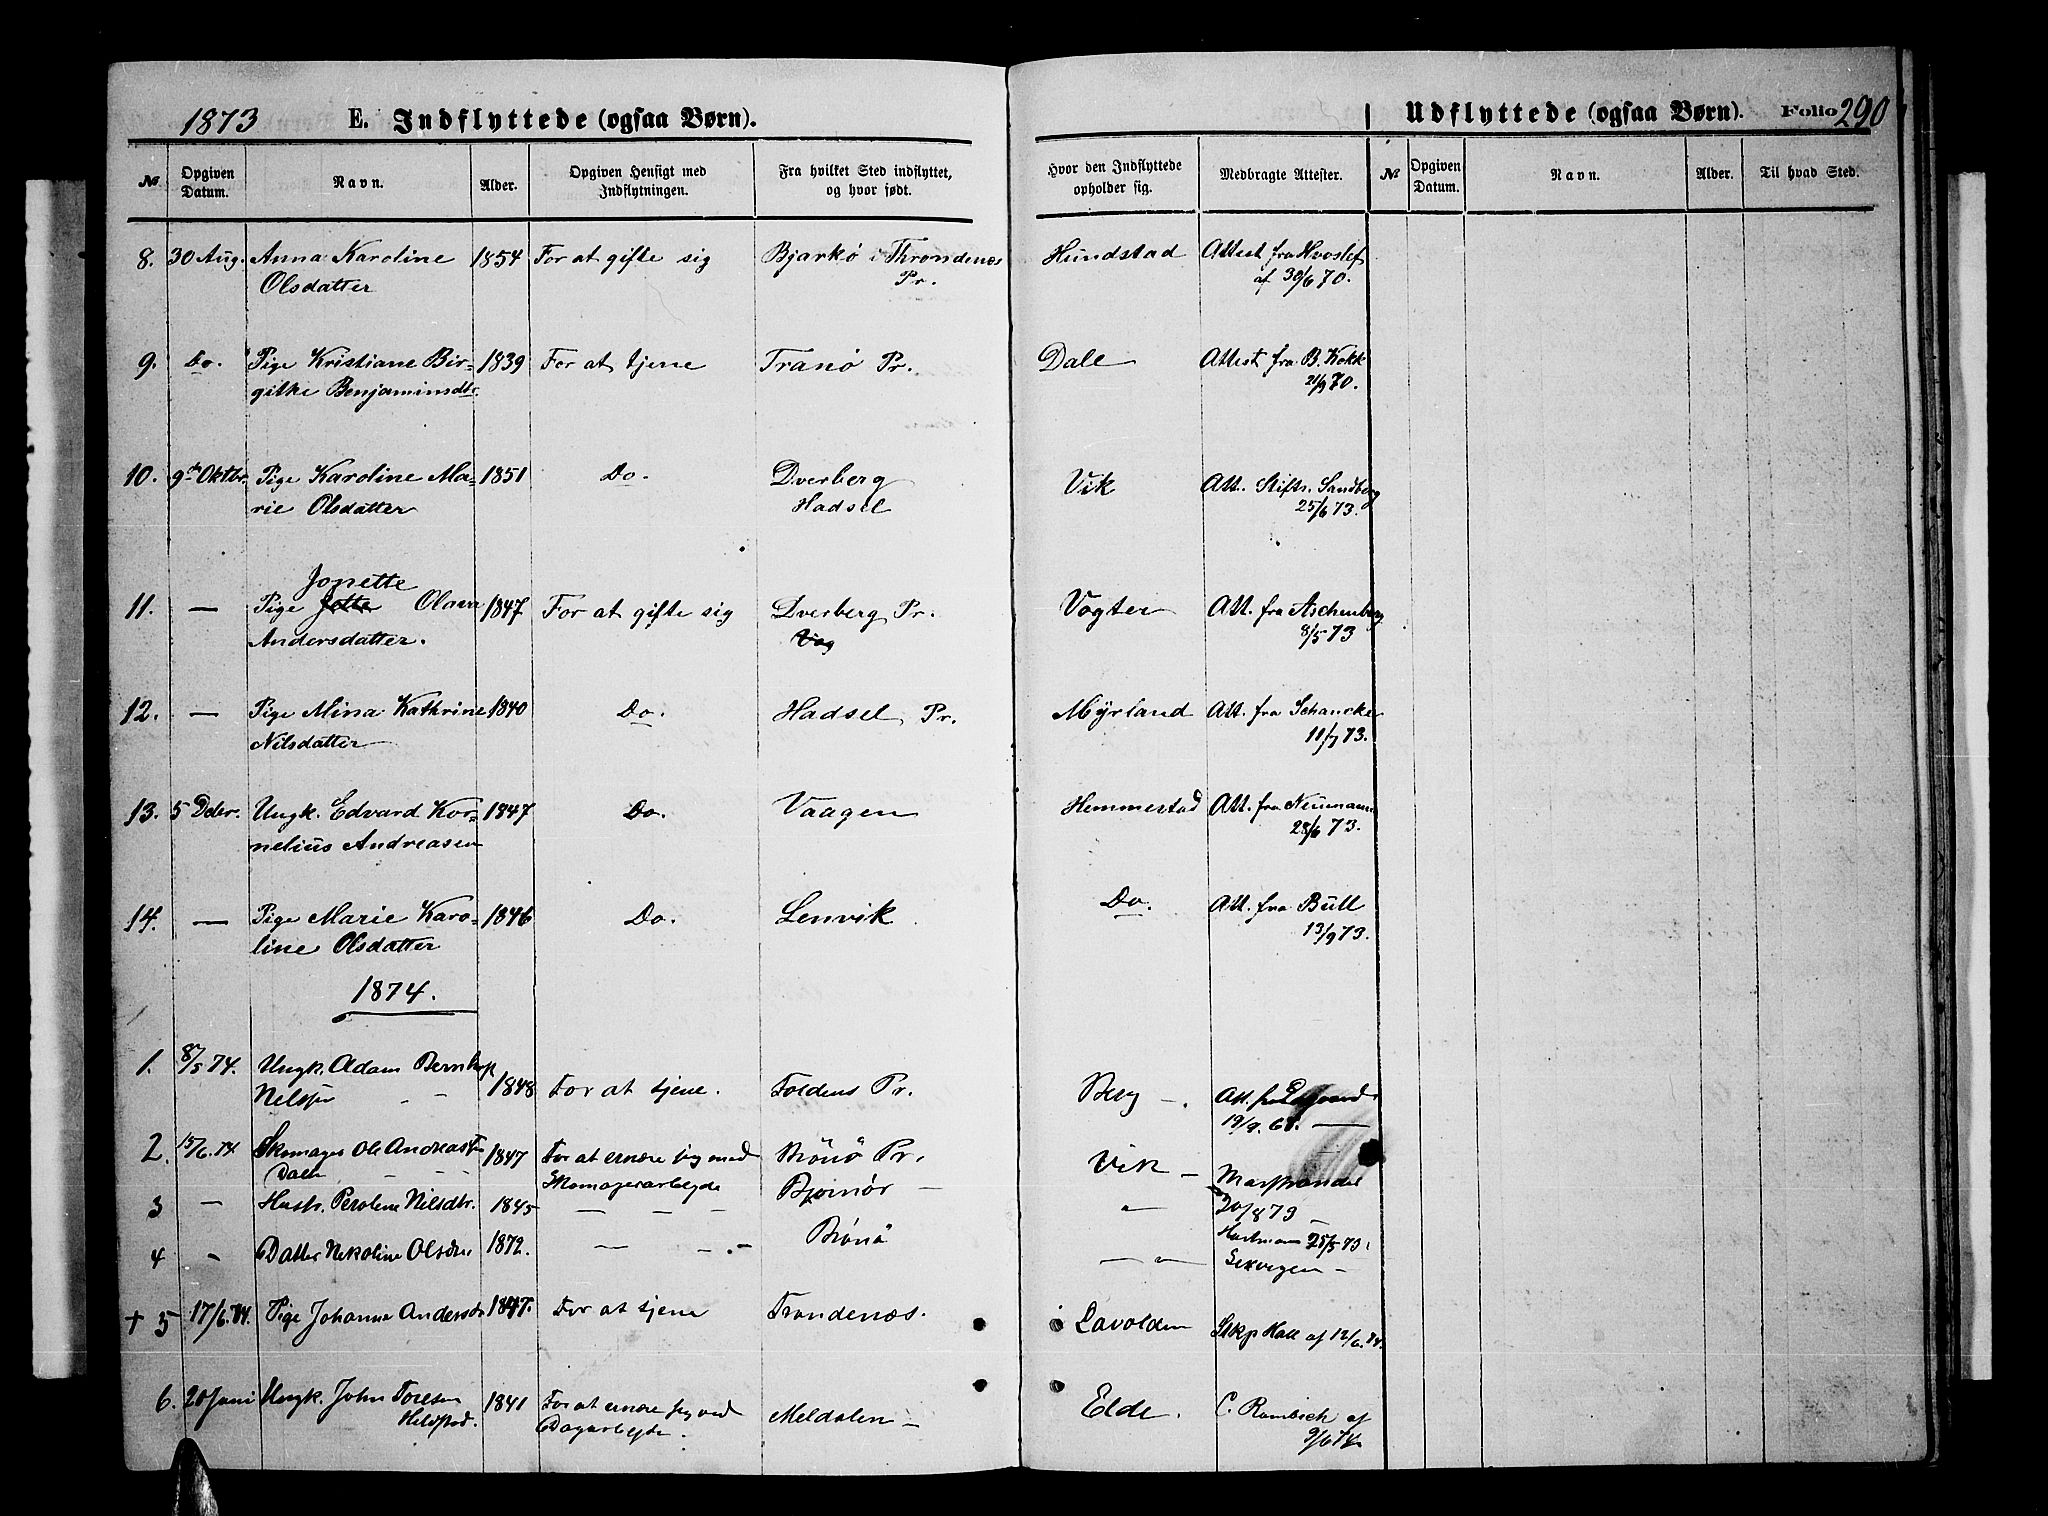 1873 E. Indflyttede (ogsaa Børn). Udflyttede (ogsaa Børn). Folio 290
№ Opgiven Datum. Navn. Alder. Opgiven Hensigt med Indflytningen. Fra hvilket Sted indflyttet, og hvor født. Hvor den Indflyttede opholder sig. Medbragte Attester. № Opgiven Datum. Navn. Alder. Til hvad Sted.
8. 30 Aug. Anna Karoline 1854 For at gifte sig Bjarkö i Throndenæs Hundstad Attest fra Hvoslef
Olsdatter Pr. af 30/6 70.
9. Do. Pige Kristiane Bir- 1839 For at tjene Tranö Pr. Dale Attest fra B. Kokk
gitke Benjaminsdtr. 21/9 70.
10. 9de Oktbr. Pige Karoline Ma- 1851 Do. Dverberg Vik Att. Stiftr. Sandberg
rie Olsdatter Hadsel 25/6 73.
Jonette
11. — Pige Jette Olava 1847 For at gifte sig Dverberg Pr. Vogter Att. fra Aschenberg
Andersdatter. Vog 8/5 73
12. — Pige Mina Kathrine 1840 Do. Hadsel Pr. Myrland Att. fra Schancke
Nilsdatter 11/7 73.
13. 5 Decbr. Ungk. Edvard Kor- 1847 Do. Vaagen Hemmestad Att. fra Neumann
nelius Andreasen 28/6 73.
14. — Pige Marie Karo- 1846 Do. Lenvik Do. Att. fra Bull
line Olsdatter 13/9 73.
1874.
1. 8/5 74. Ungk. Adam
Nelsen 1848 For at tjene. Foldens Pr. Berg —. Att. fra
19/9. 68. —
2. 15/6. 74. Skomager Ole Andreas 1847 For at ernære sig med Brönö Pr. Vik —
Dall Skomagerarbejde
3 — Hustr. Perolene Nilsdtr. 1845 — — — Bjørnör — " 20/8 73 —
4 - Datter Nekoline Olsdtr 1872. — -.- Brönö — " Hartmann 25/5 73.
+ 5 17/6. 74. Pige Johanna Andersd. 1847. For at tjene Trondenæs. Lavolden Stkp Hall af 12/6. 74.
6. 20 Juni Ungk. John Toresen 1841 For at ernære sig ved Meldalen — Elde. C. Rambech af
Hilstad. Dagarbejde. 9/6 74